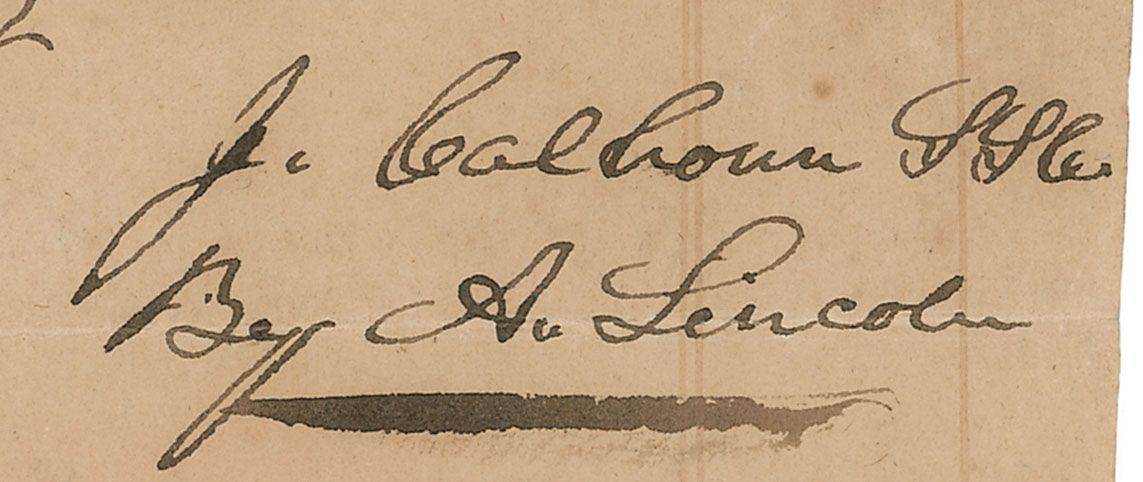 J. Calhoun S.S.C.
By A. Lincoln